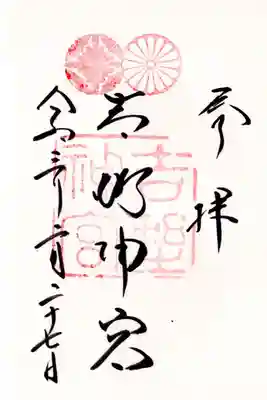 参拝
吉野神宮
吉野神宮
令和三年二月二十七日